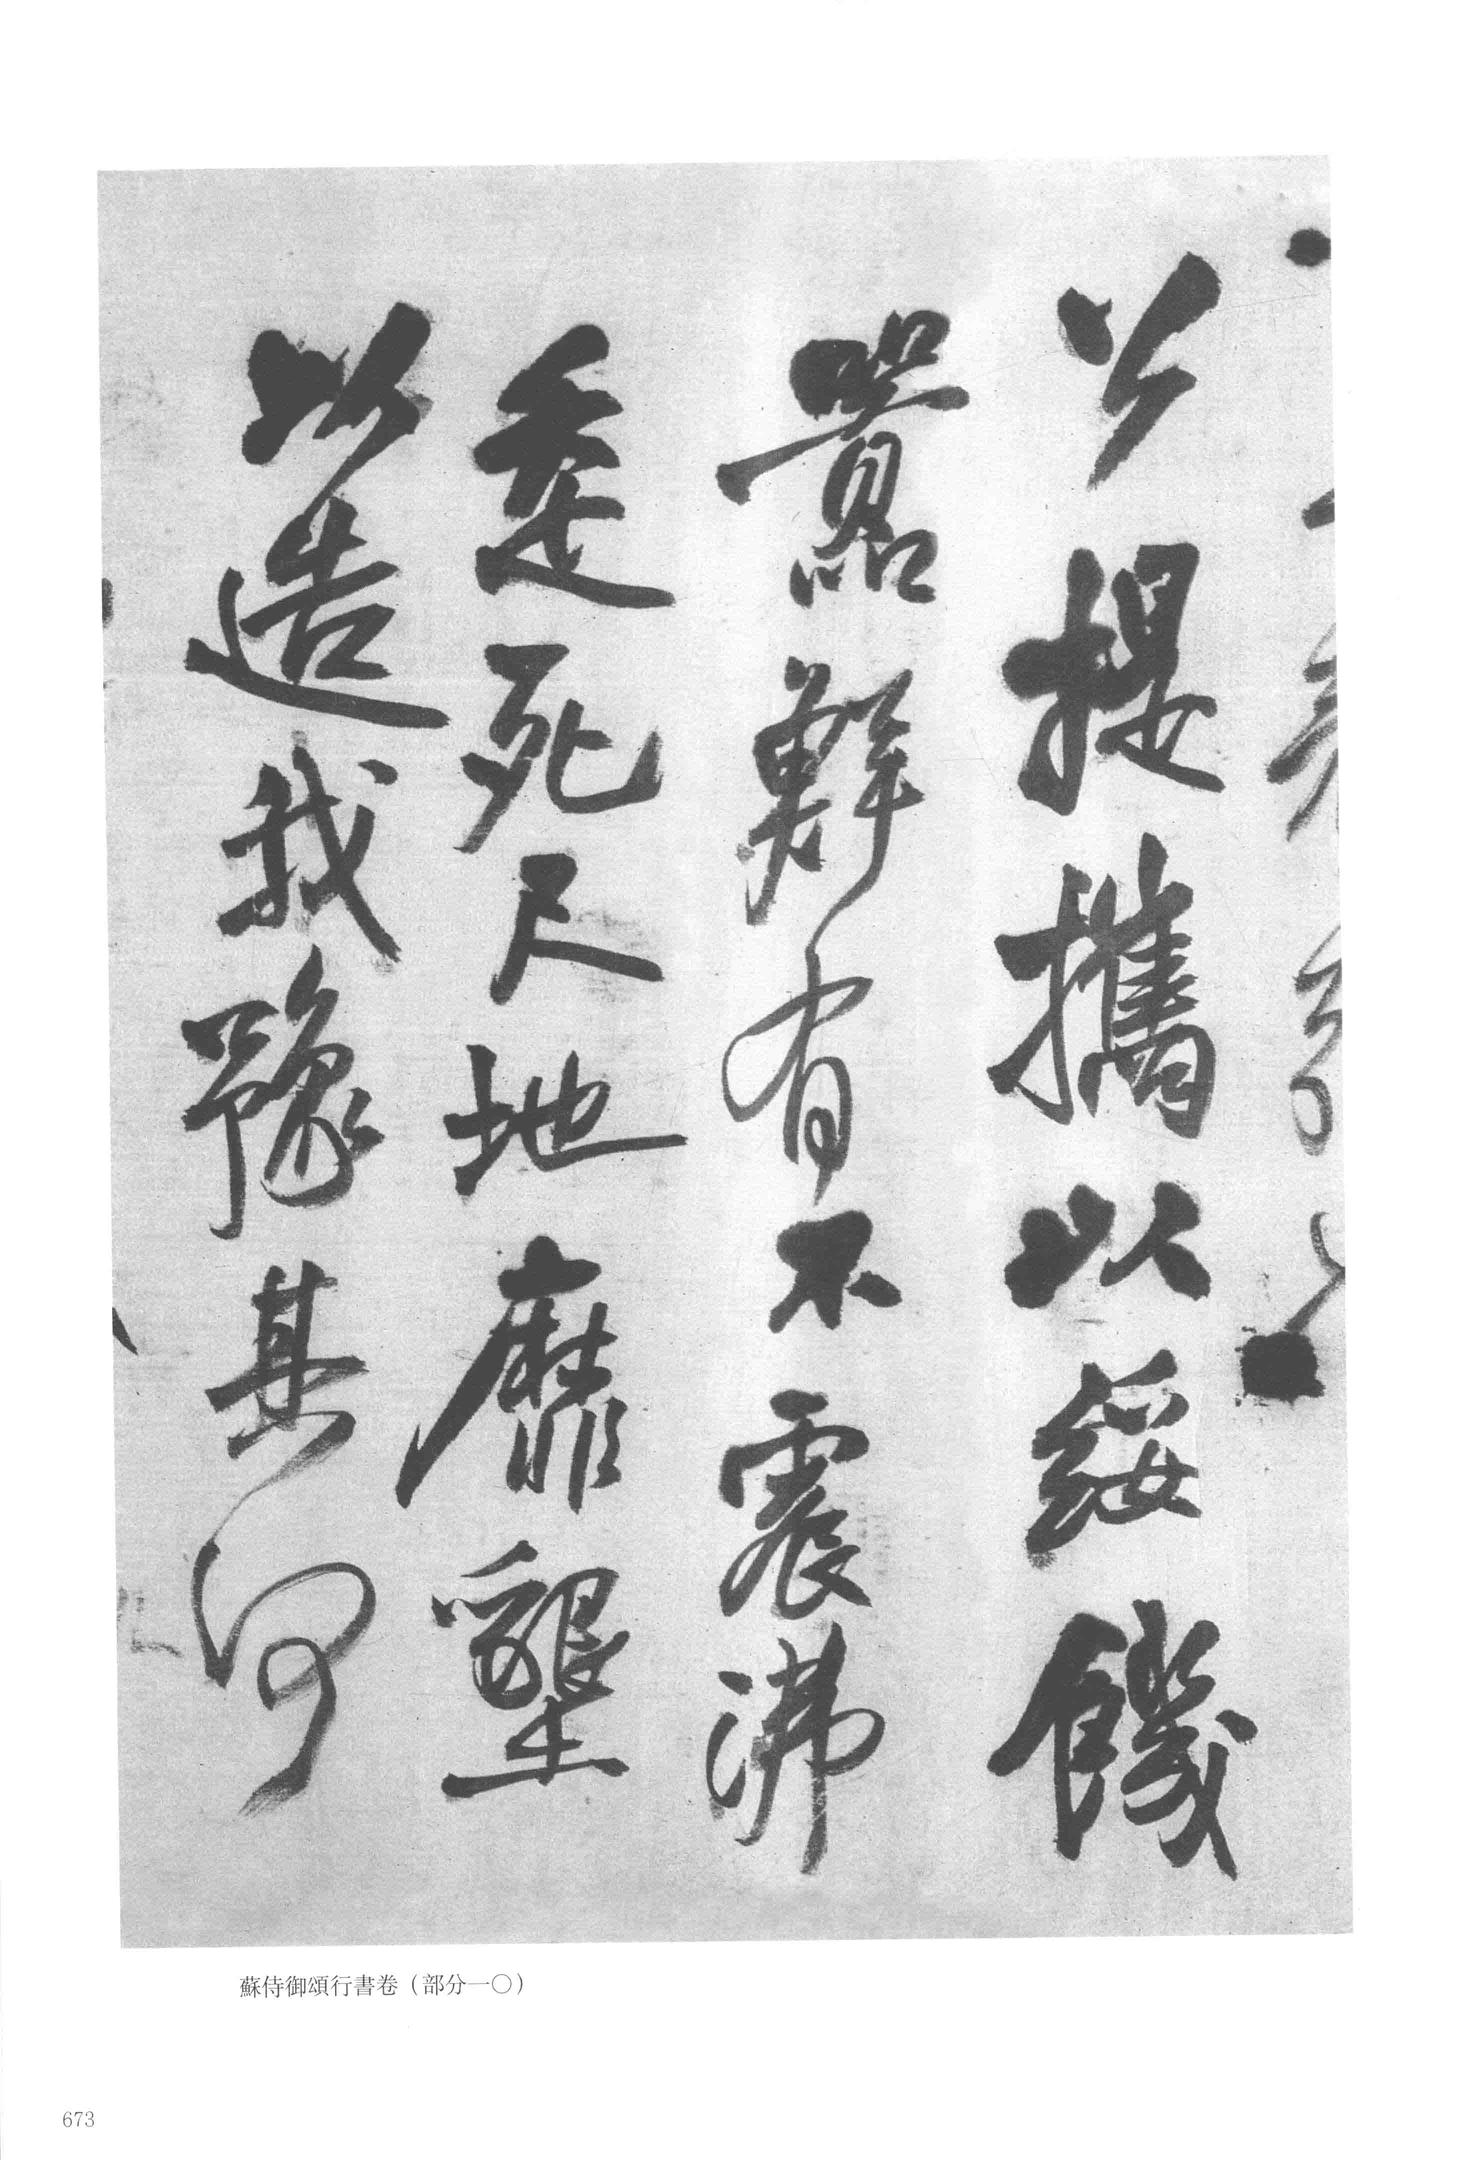 以提攜以綏饑
囂鮮有不震沸
走死尺地靡墾
以造我豫其何
蘇侍御頌行書卷（部分一〇）
673